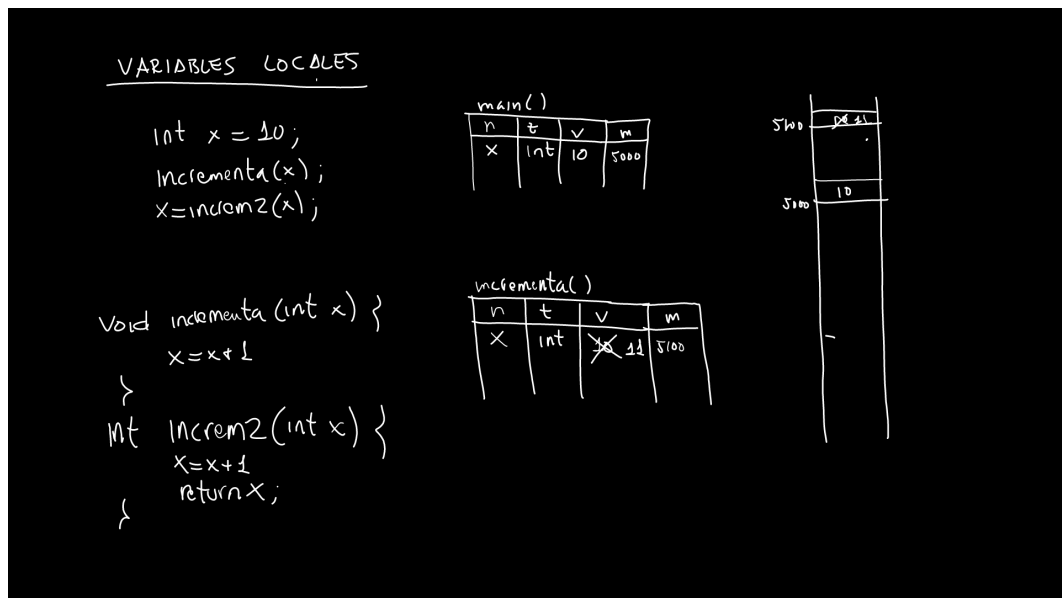 VARIABLES LOCALES
int x = 10;
incrementa(x);
x=increm2(x);
void incrementa (int x) {
x=x+1
}
int increm2(int x) {
x=x+1
return x;
}
main()
n t v m
x int 10 5000
incrementa()
n t v m
x int 10 11 5100
5100 10 11
5000 10